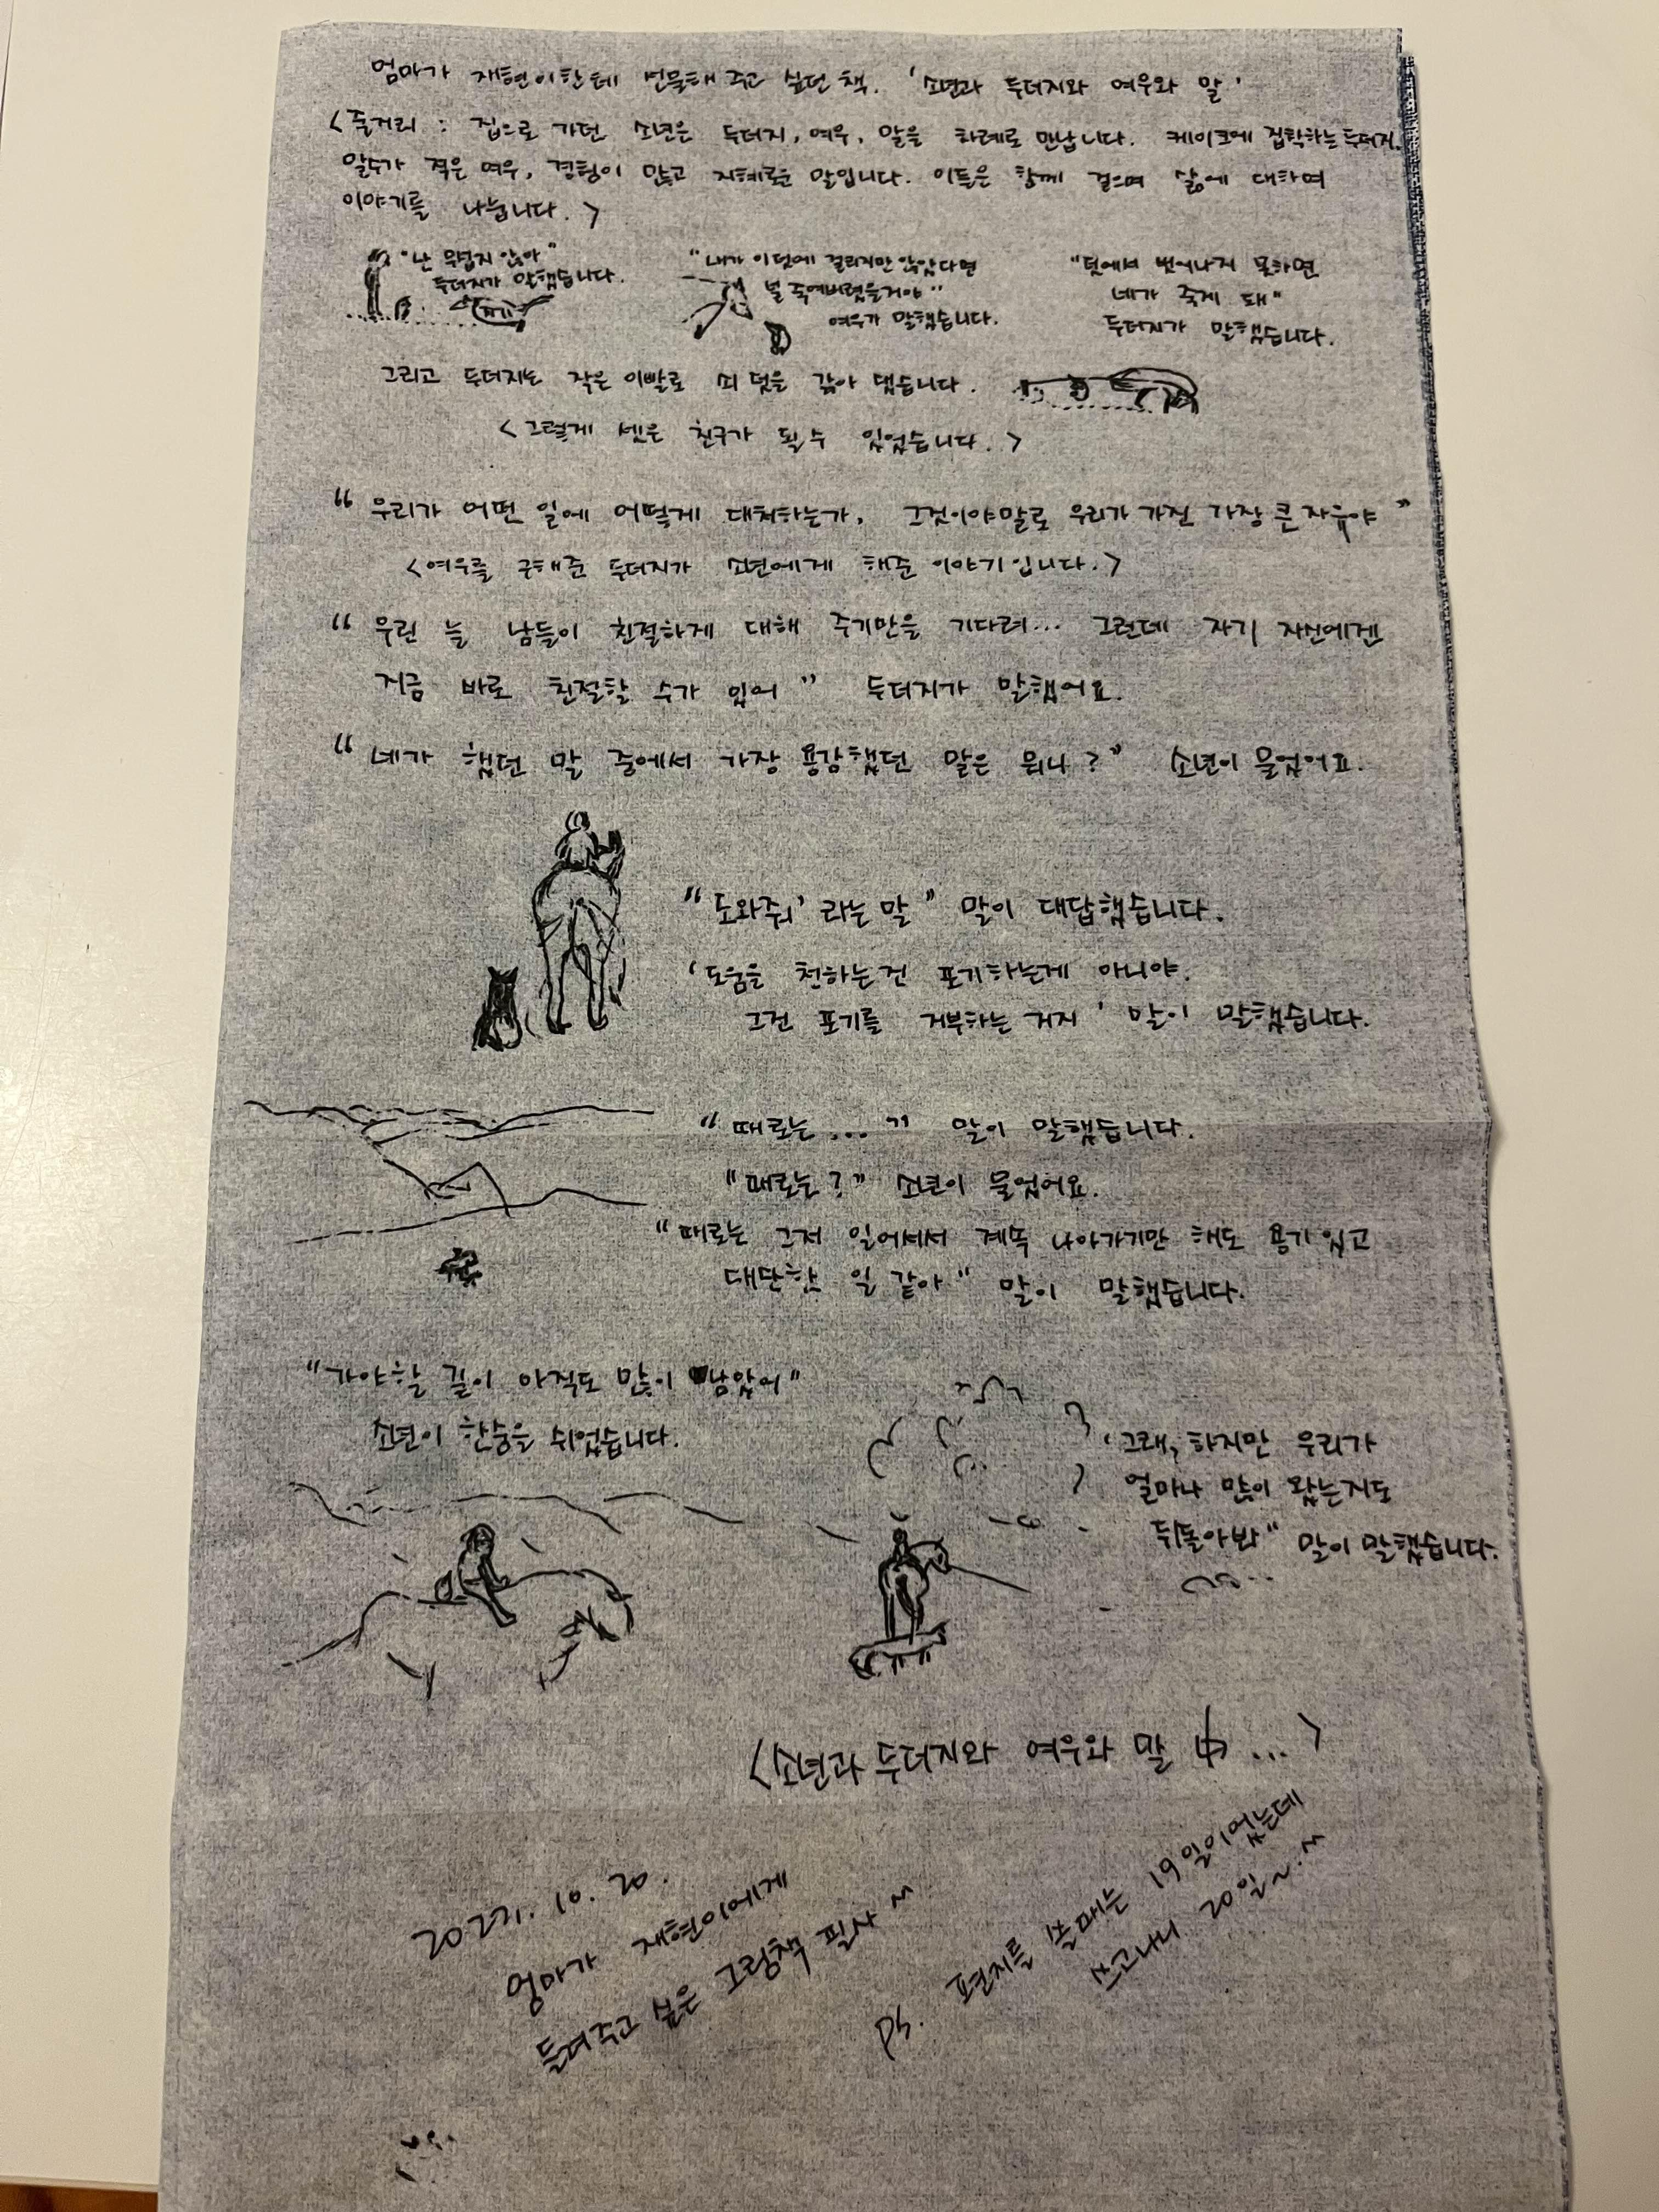 엄마가 재현이한테 선물해 주고 싶던 책. '소년과 두더지와 여우와 말'
<줄거리 : 집으로 가던 소년은 두더지, 여우, 말을 차례로 만납니다. 케이크에 집착하는 두더지.
말수가 적은 여우, 경험이 많고 지혜로운 말입니다. 이들은 함께 걸으며 삶에 대하여
이야기를 나눕니다.>
"난 무섭지 않아"
두더지가 말했습니다.
"내가 이 덫에 걸리지만 않았다면
널 죽여버렸을거야"
여우가 말했습니다.
"덫에서 벗어나지 못하면
네가 죽게 돼"
두더지가 말했습니다.
그리고 두더지는 작은 이빨로 쇠 덫을 갉아 댔습니다.
<그렇게 셋은 친구가 될 수 있었습니다.>
"우리가 어떤 일에 어떻게 대처하는가, 그것이야말로 우리가 가진 가장 큰 자유야"
<여우를 구해준 두더지가 소년에게 해준 이야기입니다.>
"우린 늘 남들이 친절하게 대해 주기만을 기다려... 그런데 자기 자신에겐
지금 바로 친절할 수가 있어" 두더지가 말했어요.
"네가 했던 말 중에서 가장 용감했던 말은 뭐니?" 소년이 물었어요.
"도와줘' 라는 말" 말이 대답했습니다.
'도움을 청하는건 포기하는게 아니야.
그건 포기를 거부하는 거지' 말이 말했습니다.
"때로는..." 말이 말했습니다.
"때로는?" 소년이 물었어요.
"때로는 그저 일어서서 계속 나아가기만 해도 용기있고
대단한 일 같아" 말이 말했습니다.
"가야할 길이 아직도 많이 남았어"
소년이 한숨을 쉬었습니다.
'그래, 하지만 우리가
얼마나 많이 왔는지도
뒤돌아봐" 말이 말했습니다.
<소년과 두더지와 여우와 말 中...>
10. 20.
엄마가 재현이에게
들려주고 싶은 그림책 필사~
ps. 편지를 쓸때는 19일이었는데
쓰고나니 20일~.~